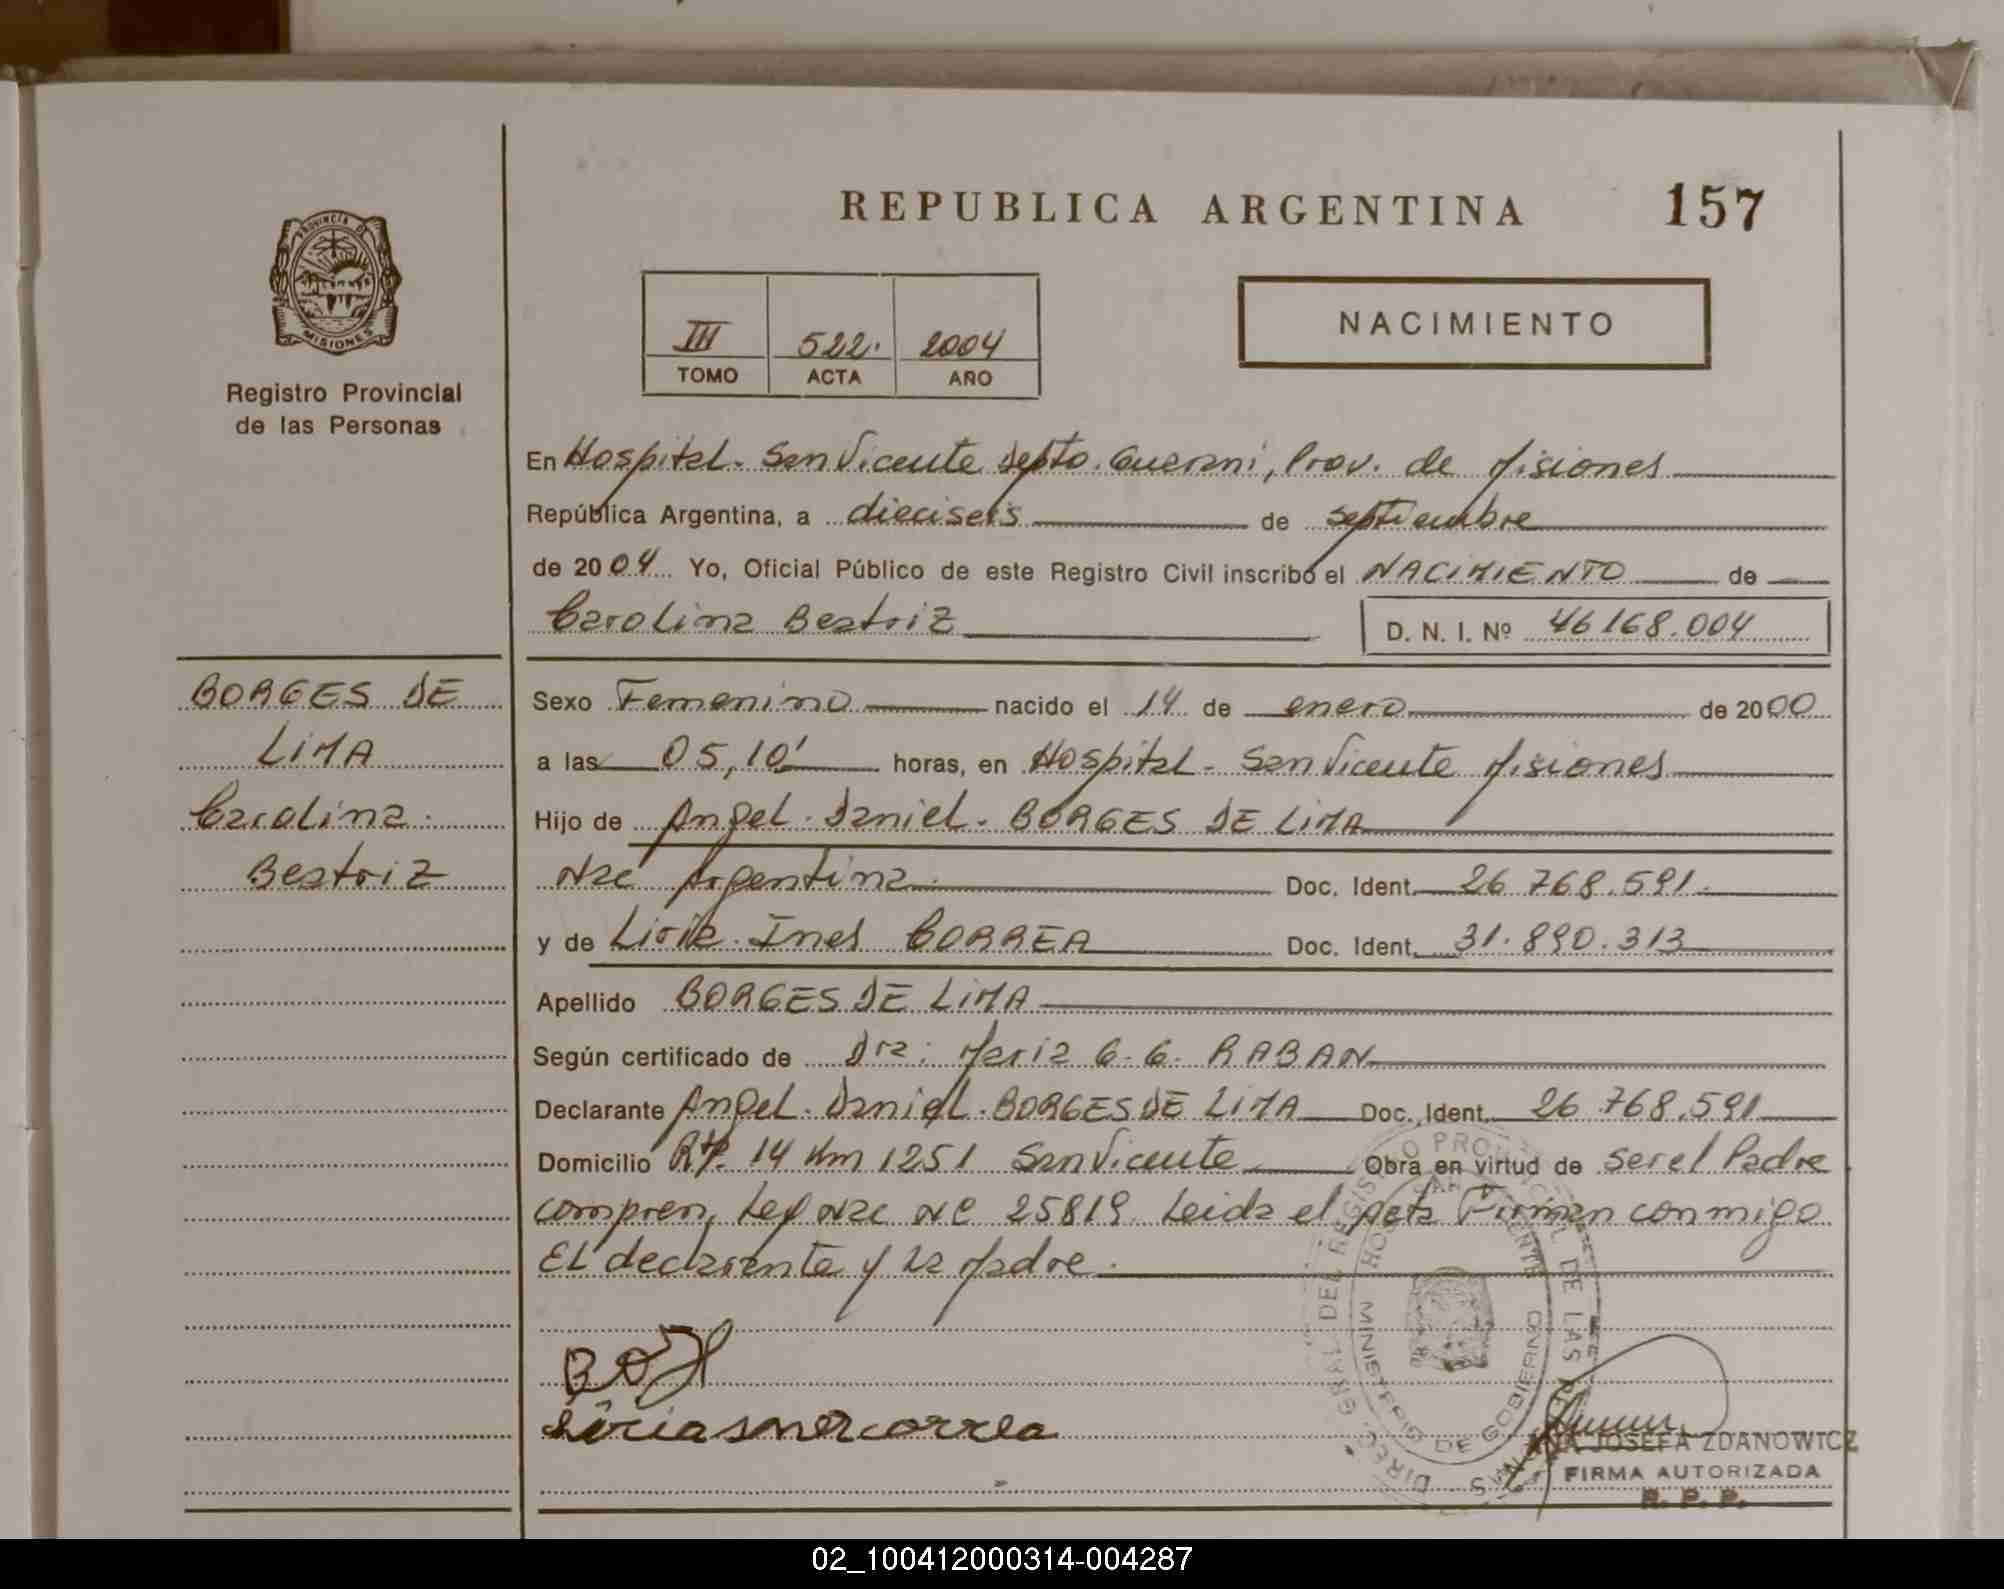 REPUBLICA ARGENTINA 157
PROVINCIA DE
MISIONES
Registro Provincial
de las Personas
III 522. 2004
TOMO ACTA AÑO
NACIMIENTO
En Hospital. San Vicente Depto. Guarani, Prov. de Misiones
República Argentina, a dieciseis de septiembre
de 2004 Yo, Oficial Público de este Registro Civil inscribo el NACIMIENTO de
Carolina Beatriz D. N. I. Nº 46168.004
BORGES DE
LIMA
Carolina.
Beatriz
Sexo Femenino nacido el 14 de enero de 2000
a las 05,10' horas, en Hospital - San Vicente Misiones
Hijo de Angel. Daniel. BORGES DE LIMA
Nac Argentina. Doc. Ident. 26 768.591.
y de Liria. Ines CORREA Doc. Ident. 31.890.313
Apellido BORGES DE LIMA
Según certificado de Dra: Maria G. G. RABAN
Declarante Angel. Daniel. BORGES DE LIMA Doc. Ident. 26 768.591
Domicilio 14 Km 1251 San Vicente Obra en virtud de ser el Padre
compren, Ley Nac Nº 25819. Leida el Acta Firman conmigo
El declarante y la Madre.
Liria correa
DIREC. GRAL DEL REGISTRO PROVINCIAL DE LAS PERSONAS
HOSPITAL SAN VICENTE
MINISTERIO DE GOBIERNO
ANA JOSEFA ZDANOWICZ
FIRMA AUTORIZADA
R. P. P.
02_100412000314-004287